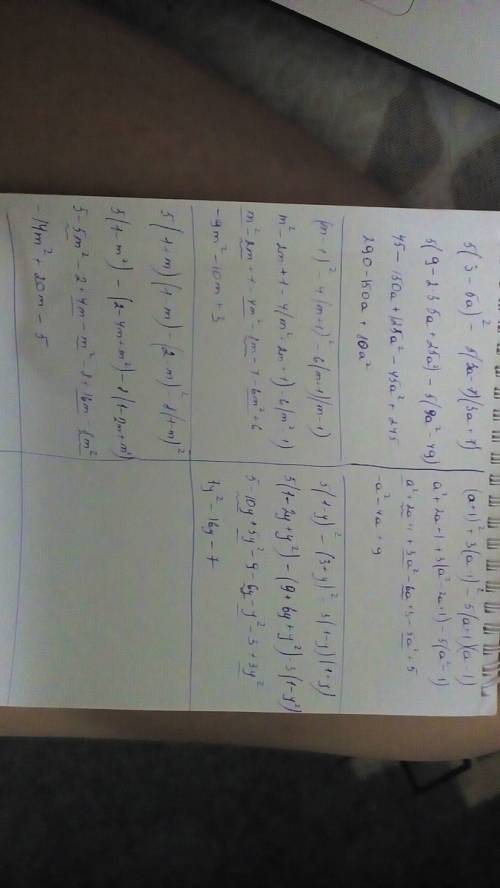 5(3-5a)² - 5(3a-7)(3a-7)
5(9-2·3·5a+25a²) - 5(9a²-49)
45-150a+125a²-45a²+245
290-150a+80a²
(m-1)² - 4(m+1)² - 6(m+1)(m-1)
m²-2m+1-4(m²+2m+1)-6(m²-1)
m²-2m+1-4m²-8m-4-6m²+6
-9m²-10m+3
5(1+m)(1-m)-(2-m)²-8(1-m)²
5(1-m²)-(2-4m+m²)-8(1-2m+m²)
5-5m²-2+4m-m²-8+16m-8m²
-14m²+20m-5
(a+1)²+3(a-1)²-5(a+1)(a-1)
a²+2a+1+3(a²-2a+1)-5(a²-1)
a²+2a+1+3a²-6a+3-5a²+5
-a²-4a+9
5(1-y)²-(3+y)²-3(1-y)(1+y)
5(1-2y+y²)-(9+6y+y²)-3(1-y²)
5-10y+5y²-9-6y-y²-3+3y²
7y²-16y-7